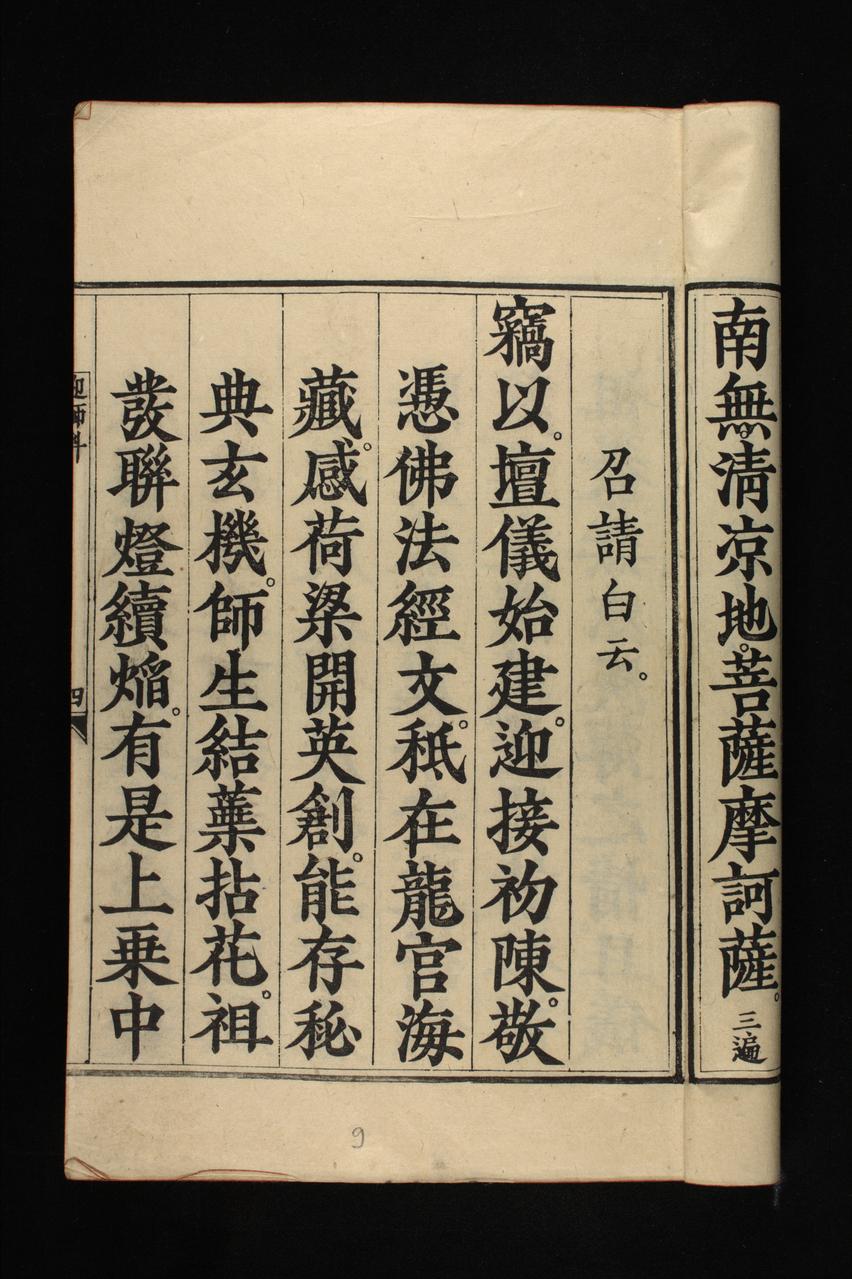 南無清凉地。菩薩摩訶薩。三遍
召請白云。
竊以。壇儀始建。迎接初陳。敬
憑佛法經文。秪在龍宫海
藏。感荷梁開英創。能存秘
典玄機。師生結蘂拈花。祖
發聯燈續熖。有是上乗中
迎師科 四
9